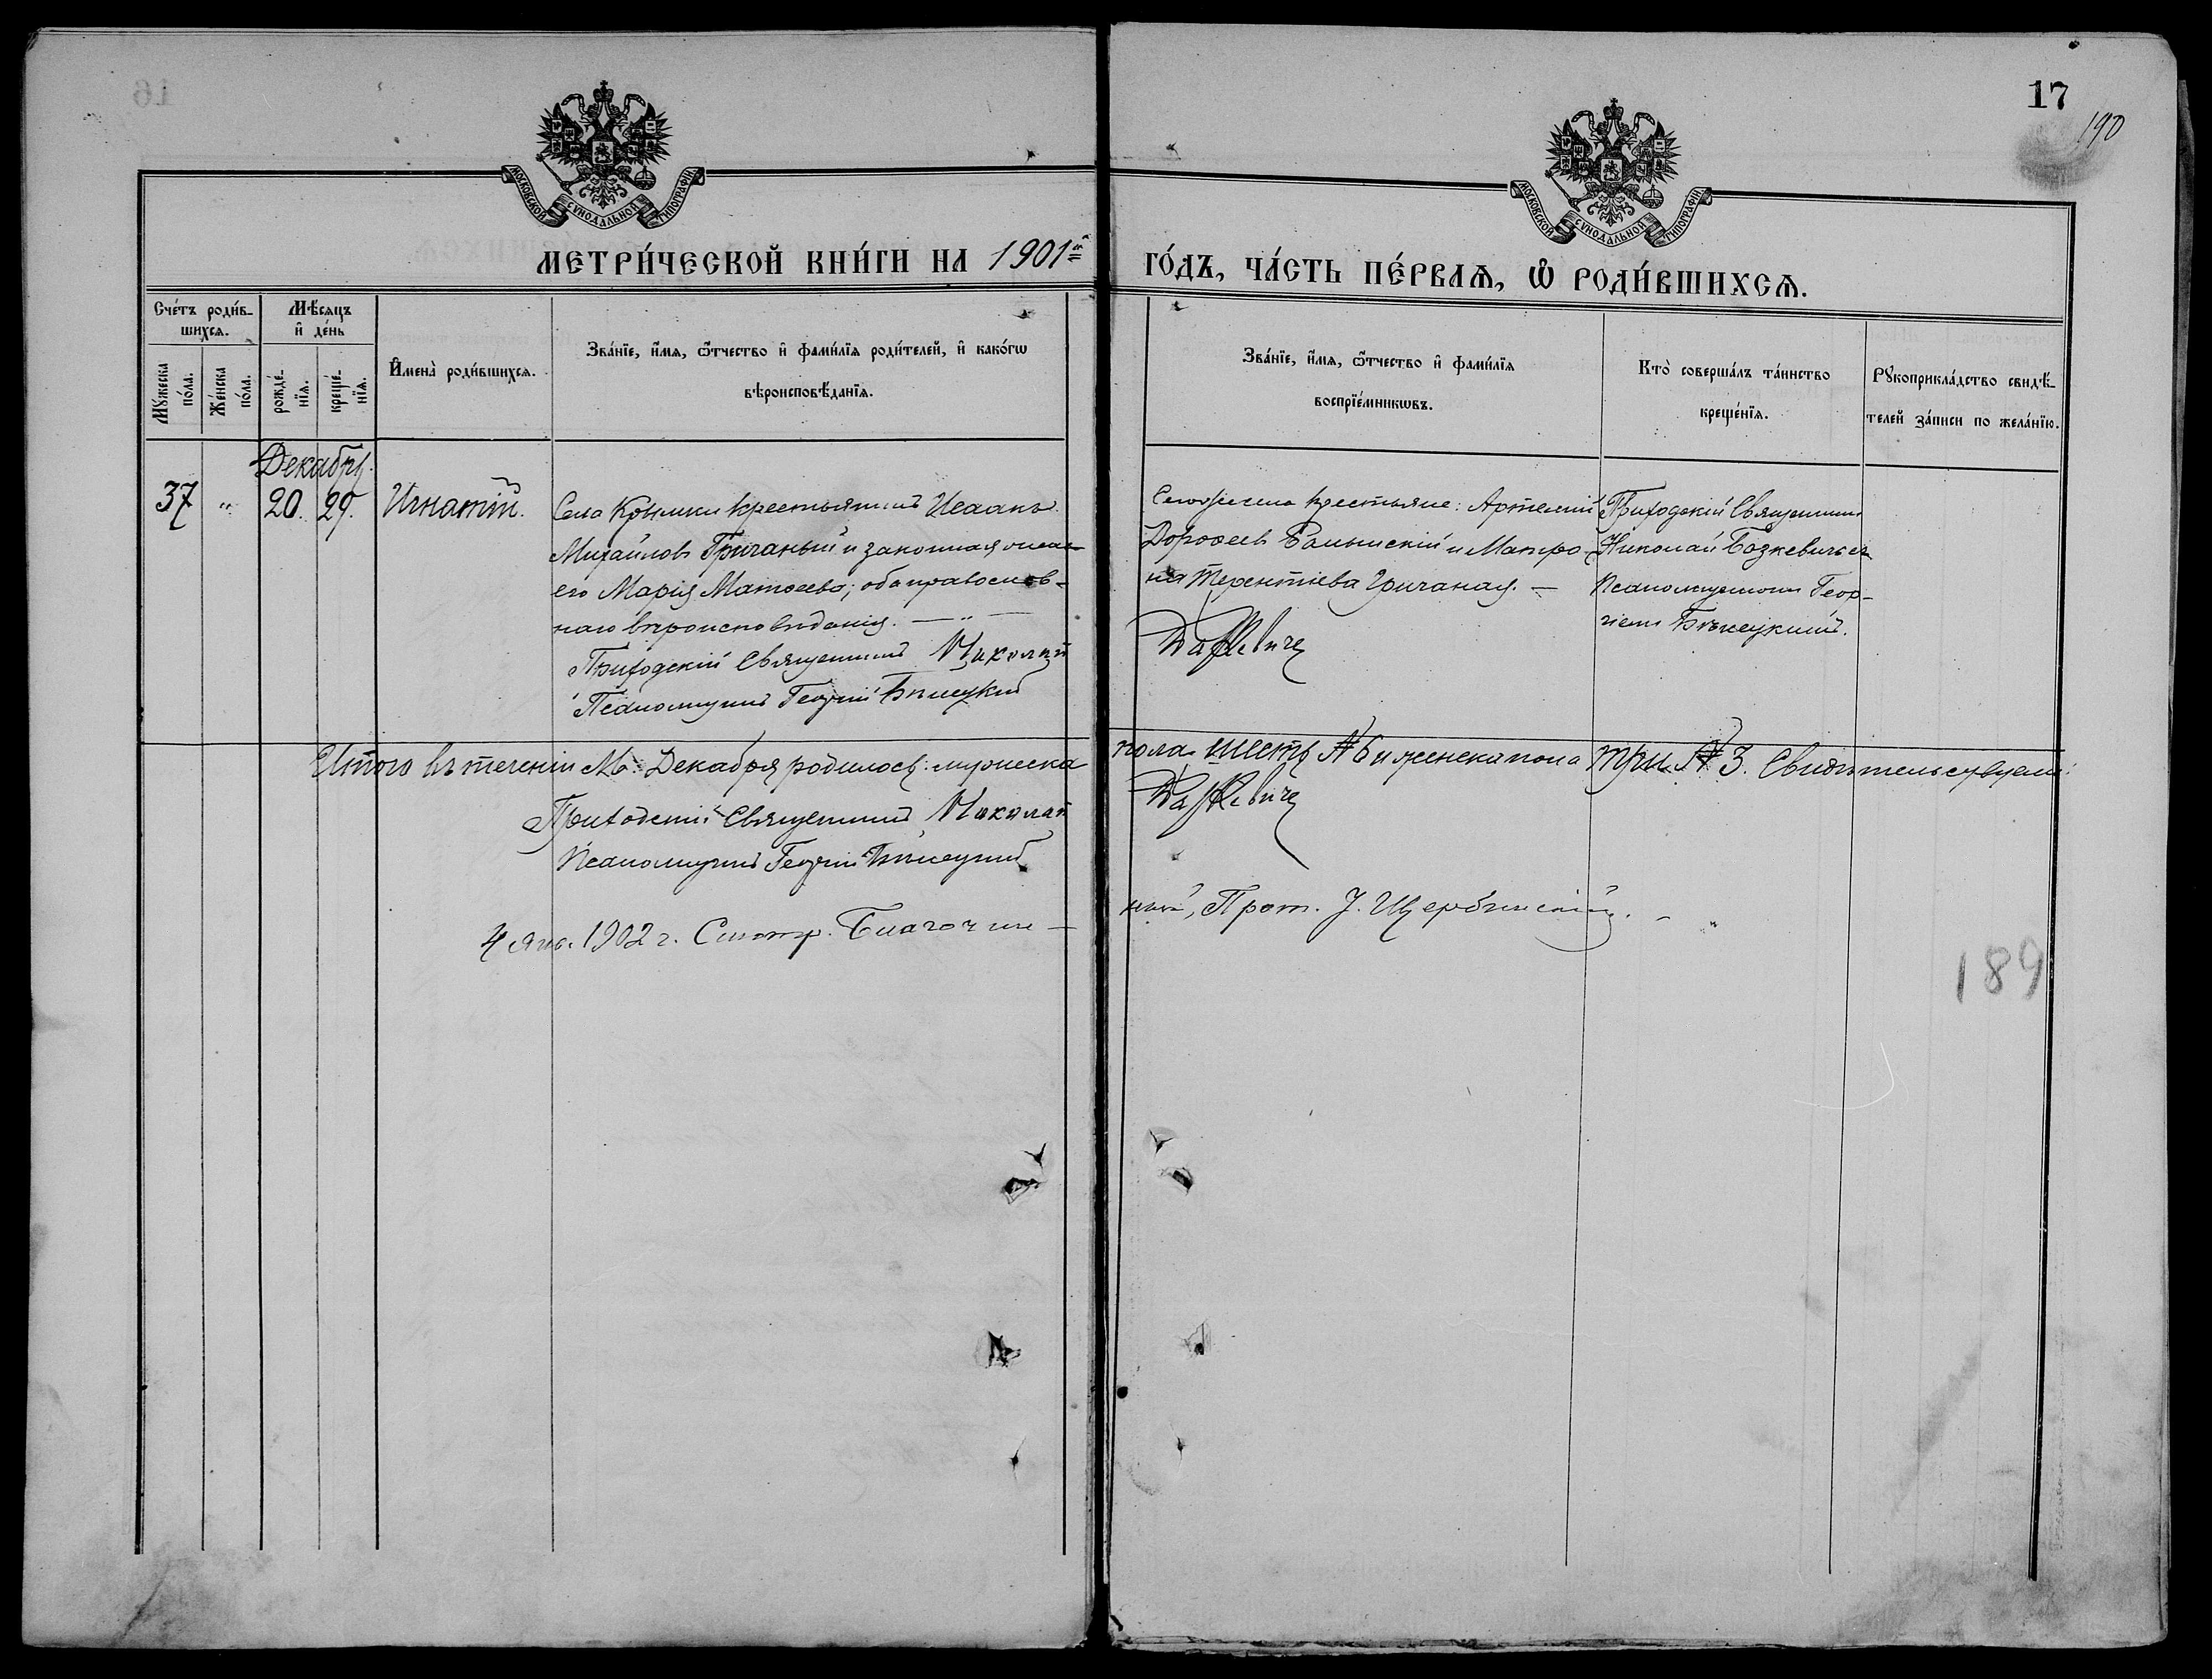 17
190
МОСКОВСКОЙ СѴНОДАЛЬНОЙ ТИПОГРАФІИ
МОСКОВСКОЙ СѴНОДАЛЬНОЙ ТИПОГРАФІИ
МЕТРИ́ЧЕСКОЙ КНИ́ГИ НА 1901й
ГО́ДЪ, ЧА́СТЬ ПЕ́РВАѦ, Ѡ҆ РОДИ́ВШИХСѦ.
Сче́тъ роди́в-
шихсѧ.
Мѹ́жеска по́ла.
Же́нска по́ла.
Мѣ́сѧцъ
и҆ де́нь
рожде́-
нїѧ.
креще́-
нїѧ.
И҆мена̀ роди́вшихсѧ.
Зва́нїе, и҆́мѧ, ѻ҆́тчество и҆ фами́лїѧ роди́телей, и҆ како́гѡ
вѣроисповѣ́данїѧ.
Зва́нїе, и҆́мѧ, ѻ҆́тчество и҆ фами́лїѧ
воспрїе́мникѡвъ.
Кто̀ соверша́лъ та́инство
креще́нїѧ.
Рѹкоприкла́дство свидѣ́-
телей за́писи по жела́нїю.
Декабрь.
37 " 20. 29. Игнатій.
Села Крымки крестьянинъ Исаакъ
Михайловъ Гричаный и законная жена
его Марія Матѳеева; оба православ-
наго вѣроисповѣданія. — " —
Приходскій Священникъ Николай
Псаломщикъ Георгій
Того же села крестьяне: Артемій
Дороѳеевъ и Матро-
на Терентіева Гричаная. —
Приходскій Священникъ
Николай съ
Псаломщикомъ Геор-
гіемъ
Итого въ теченіи М. Декабря родилось: мужеска
пола шесть № 6 и женска пола три № 3. Свидѣтельствуемъ:
Приходскій Священникъ Николай
Псаломщикъ Георгій
4 Янв. 1902 г. Смотр. Благочин-
ный, Прот. І. Щербинскій.
189